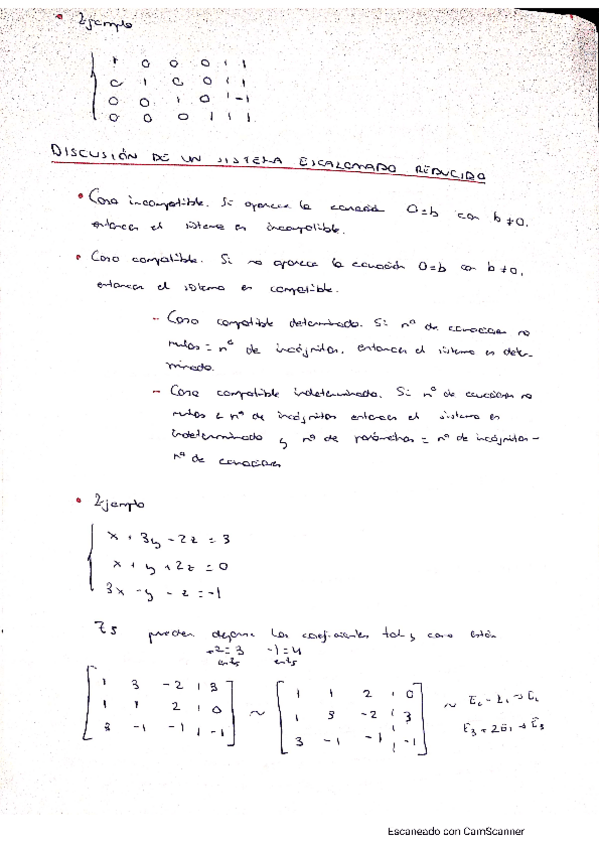 • Ejemplo
1 0 0 0 | 1
0 1 0 0 | 1
0 0 1 0 | -1
0 0 0 1 | 1
DISCUSIÓN DE UN SISTEMA ESCALONADO REDUCIDO
• Caso incompatible. Si aparece la ecuación 0=b con b≠0,
entonces el sistema es incompatible.
• Caso compatible. Si no aparece la ecuación 0=b con b≠0,
entonces el sistema es compatible.
- Caso compatible determinado. Si nº de ecuaciones no
nulas = nº de incógnitas, entonces el sistema es deter-
minado.
- Caso compatible indeterminado. Si nº de ecuaciones no
nulas < nº de incógnitas entonces el sistema es
indeterminado y nº de parámetros = nº de incógnitas -
nº de ecuaciones
• Ejemplo
x + 3y - 2z = 3
x + y + 2z = 0
3x - y - z = -1
Z5 pueden dejarse los coeficientes tal y como están
+2=3 -1=4
en Z5 en Z5
1 3 -2 | 3
1 1 2 | 0
3 -1 -1 | -1
~
1 1 2 | 0
1 3 -2 | 3
3 -1 -1 | -1
~ E2 - E1 → E2
E3 + 2E1 → E3
Escaneado con CamScanner